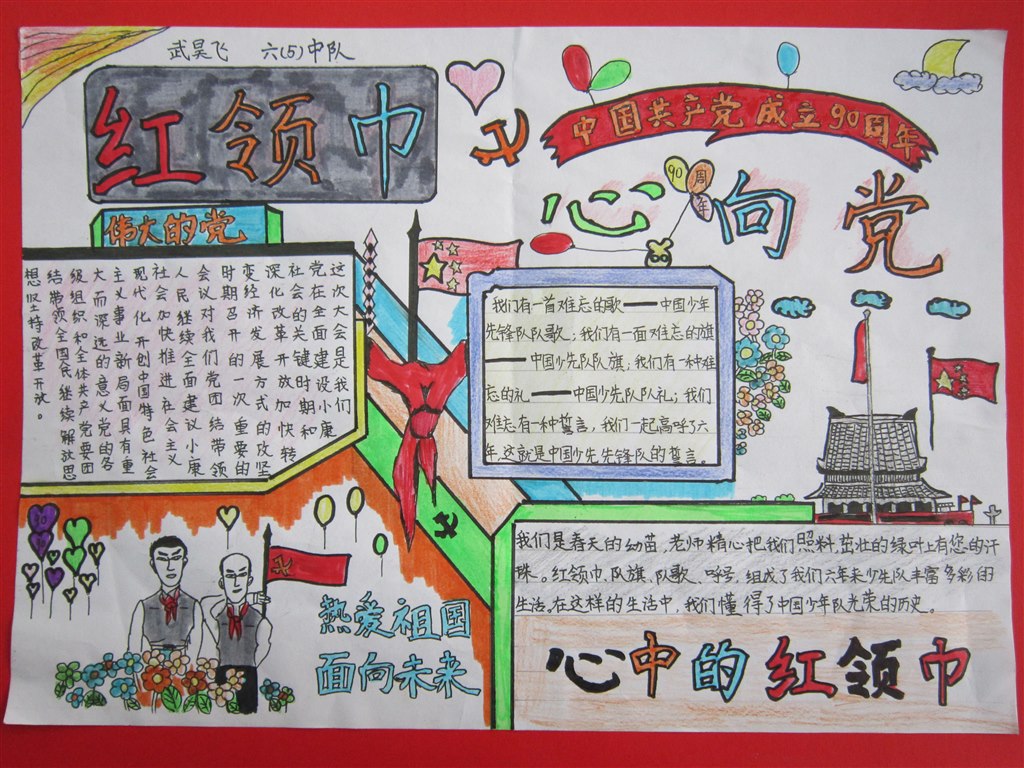 武昊飞 六(5)中队
红领巾
中国共产党成立90周年
心向党
90周年
伟大的党
这次大会是我们
党在全面建设小康
社会的关键时期和
深化改革开放加快转
变经济发展方式的攻坚
时期召开的一次重要的
会议对我们党团结带领
人民继续全面建议小康
社会加快推进社会主义
现代化开创中国特色社会
主义事业新局面具有重
大而深远的意义党的各
级组织和全体共产党要团
结带领全国民继续解放思
想坚持改革开放。
我们有一首难忘的歌——中国少年
先锋队队歌，我们有一面难忘的旗
——中国少先队队旗；我们有一种难
忘的礼——中国少先队队礼；我们
难忘有一种誓言，我们一起高呼了六
年，这就是中国少先先锋队的誓言。
90
热爱祖国
面向未来
我们是春天的幼苗，老师精心把我们照料，茁壮的绿叶上有您的汗
珠。红领巾、队旗、队歌、呼号，组成了我们六年来少先队丰富多彩的
生活，在这样的生活中，我们懂得了中国少年队光荣的历史。
心中的红领巾